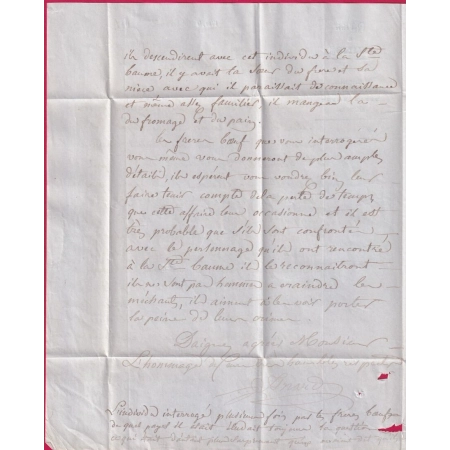 ils descendirent avec cet individu à la Ste
baume, il y avait la Sœur du frere et sa
mère avec qui il paraissait de connaissance
et même assez familier, il mangea la
du fromage et du pain.
Les freres bœuf que vous interrogerés
vous même vous donneront de plus amples
détails, ils espèrent vous voudrez bien leur
faire tenir compte de la perte des temps
que cette affaire leur occasionne et il est
très probable que s'ils sont confrontés
avec le personnage qu'ils ont rencontré
à la Ste baume ils le reconnaitront
ils ne sont pas hommes a craindre les
méchants, ils aiment à les voir porter
la peine de leurs crimes
Daignez agréer Monsieur
L'hommage de
L'individu interrogé plusieurs fois par les freres bœuf
du quel pays il était éludait toujours la question